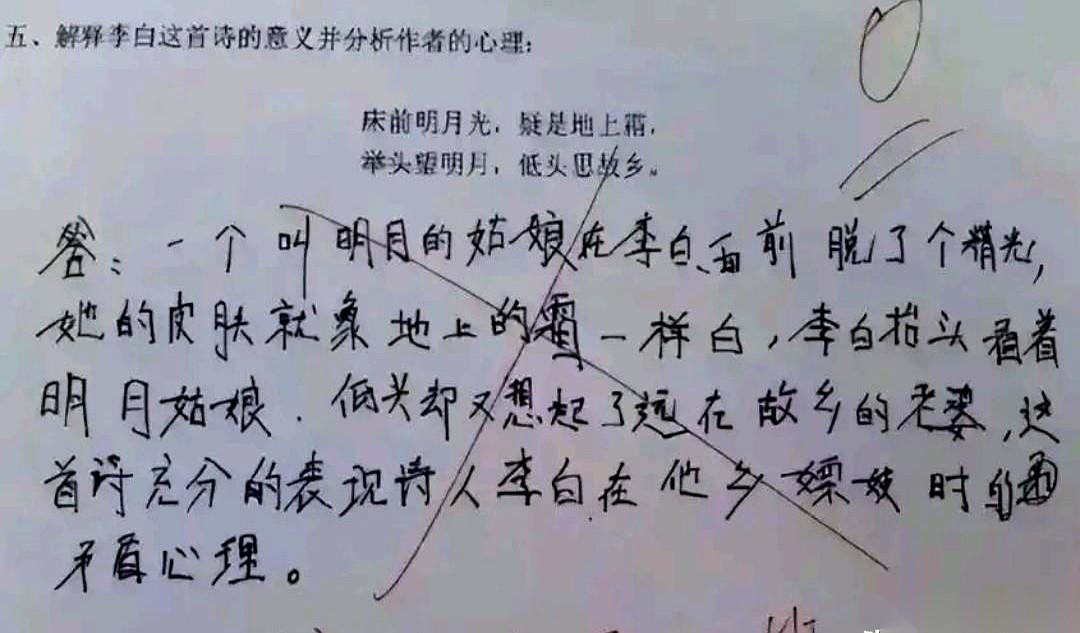 五、解释李白这首诗的意义并分析作者的心理:
0
床前明月光,疑是地上霜,
举头望明月,低头思故乡。
答:一个叫明月的姑娘在李白面前脱了个精光,
她的皮肤就象地上的霜一样白,李白抬头看着
明月姑娘.低头却又想起了远在故乡的老婆,这
首诗充分的表现诗人李白在他乡嫖妓时的
矛盾心理。